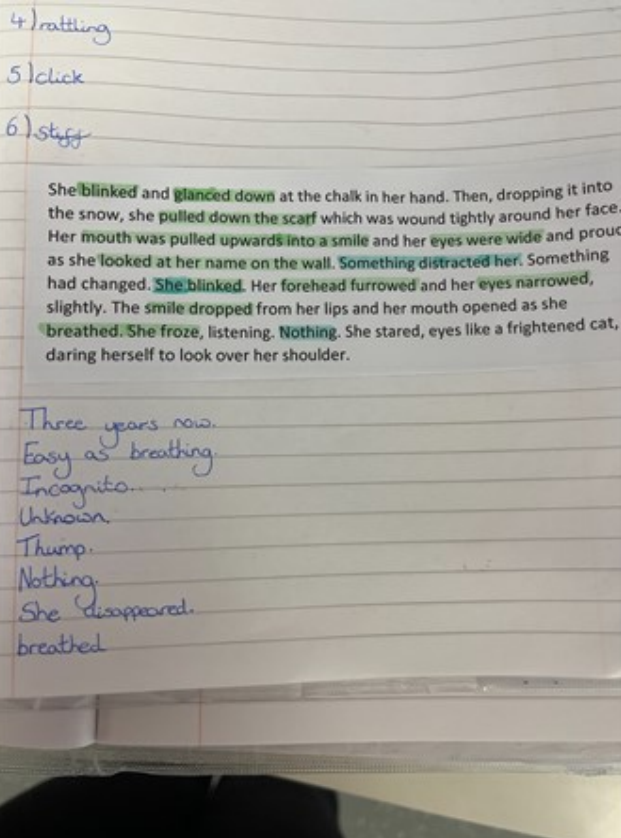 4) rattling
5) click
6) stuff
She blinked and glanced down at the chalk in her hand. Then, dropping it into
the snow, she pulled down the scarf which was wound tightly around her face.
Her mouth was pulled upwards into a smile and her eyes were wide and proud
as she looked at her name on the wall. Something distracted her. Something
had changed. She blinked. Her forehead furrowed and her eyes narrowed,
slightly. The smile dropped from her lips and her mouth opened as she
breathed. She froze, listening. Nothing. She stared, eyes like a frightened cat,
daring herself to look over her shoulder.
Three years now.
Easy as breathing.
Incognito.....
Unknown.
Thump.
Nothing.
She disappeared.
breathed